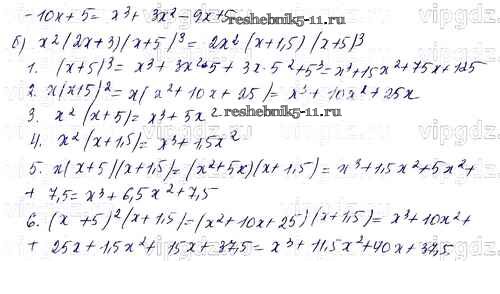 - 10x + 5 = x³ + 3x² - 9x + 5
reshebnik5-11.ru
б) x² (2x + 3) (x + 5)³ = 2x² (x + 1,5) (x + 5)³
1. (x + 5)³ = x³ + 3x²·5 + 3x·5² + 5³ = x³ + 15x² + 75x + 125
2. x(x + 5)² = x(x² + 10x + 25) = x³ + 10x² + 25x
3. x² (x + 5) = x³ + 5x²
reshebnik5-11.ru
4. x² (x + 1,5) = x³ + 1,5x²
5. x(x + 5)(x + 1,5) = (x² + 5x)(x + 1,5) = x³ + 1,5x² + 5x² +
+ 7,5 = x³ + 6,5x² + 7,5
6. (x + 5)² (x + 1,5) = (x² + 10x + 25)(x + 1,5) = x³ + 10x² +
+ 25x + 1,5x² + 15x + 37,5 = x³ + 11,5x² + 40x + 37,5.
vipgdz